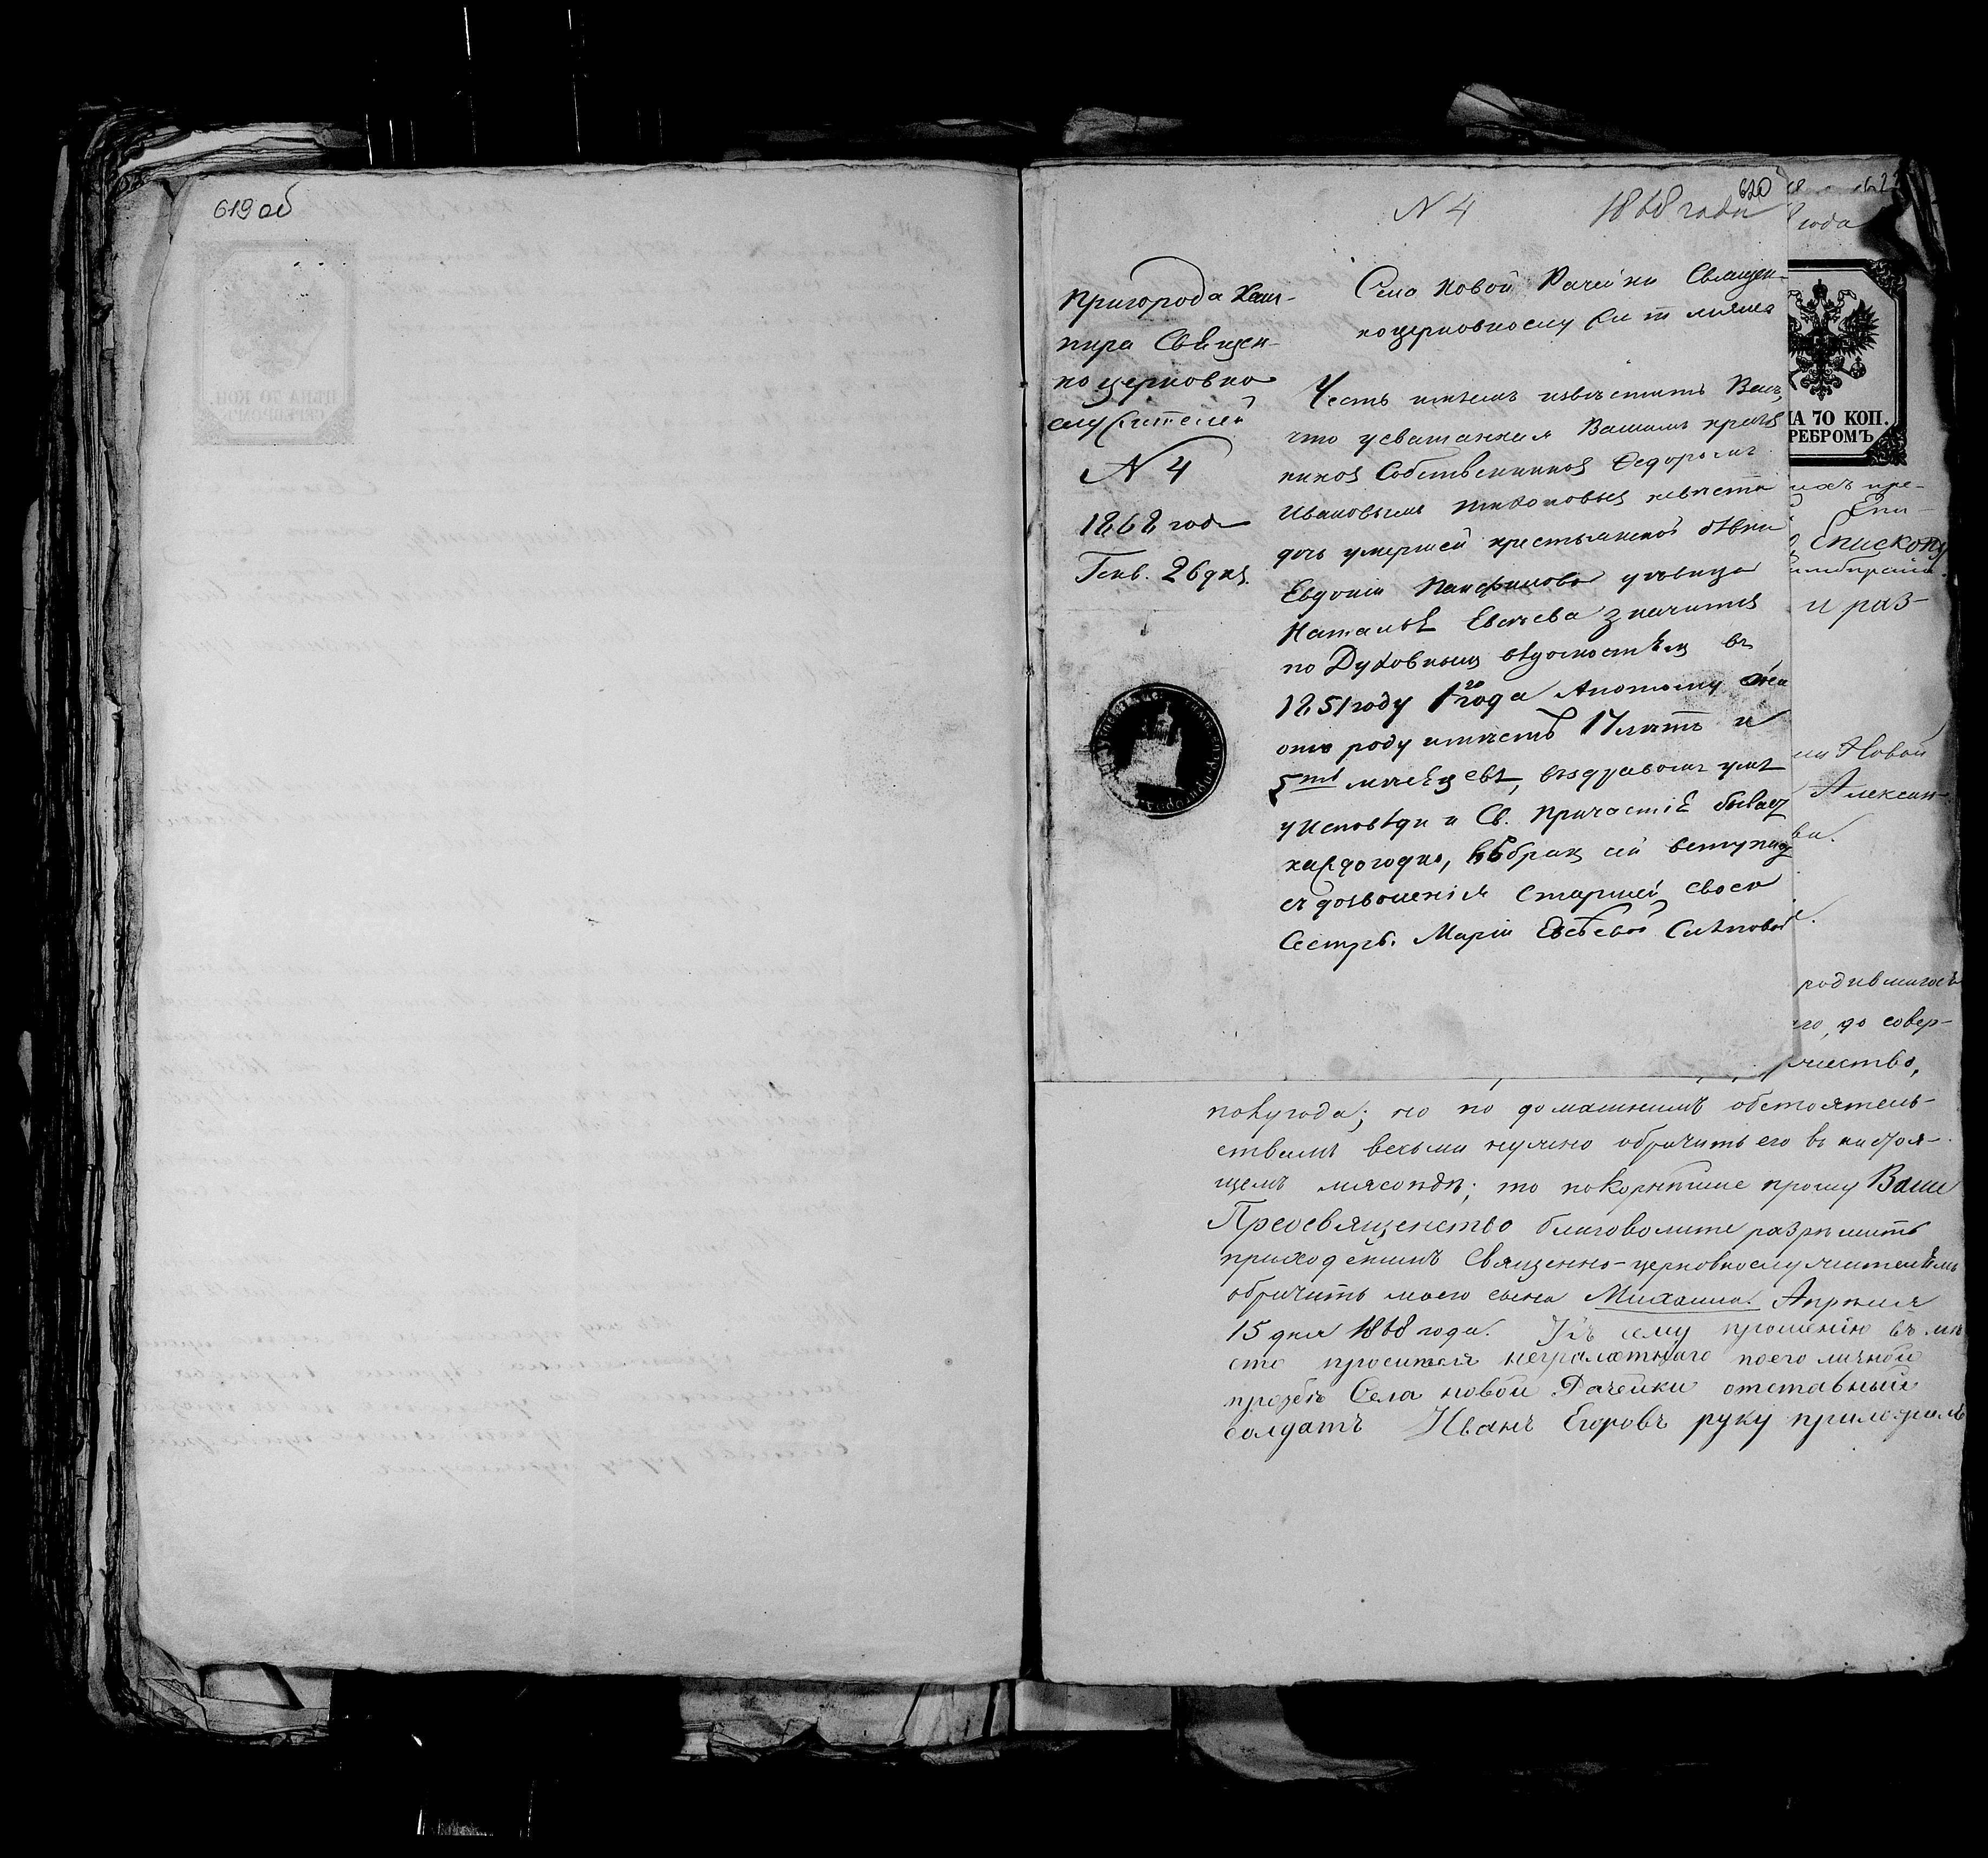 619 об
N 4 1868 года
620
Пригорода Каш-
пира Священ-
но церковно
служителей
N 4
1868 года
Генв. 26 дня.
Села Новой Рачейки Священ-
ноцерковнослужителямъ
Честь имѣемъ извѣстить Васъ,
что усватанная Вашимъ
Собственникомъ Ѳедоромъ
Ивановымъ невѣста
дочь умершей крестьянской дѣвки
Евдокіи Панфиловой девица
Наталья Евсѣева значится
по Духовнымъ вѣдомостямъ въ
1851 году 1го года А потому она
отъ роду имѣетъ 17 лѣтъ и
5ть месяцевъ, въ здравомъ умѣ
у Исповѣди и Св. Причастіѣ бываетъ
каждогодно, въ бракъ сей вступаетъ
съ дозволенія Старшей своей
Сестры Маріи Евсѣевой
года
ЦѢНА 70 КОП.
СЕРЕБРОМЪ
пре-
Епи-
Епископу
и раз-
Новой
Алексан-
родившагося
до совер-
полугода; но по домашнимъ обстоятель-
ствамъ весьма нужно обрачить его въ настоя-
щемъ мясоядѣ; то покорнѣйше прошу Ваше
Преосвященство благоволите разрѣшить
приходскимъ Священно-церковнослужителямъ
обрачить моего сына Михаила. Апрѣля
15 дня 1868 года. Къ сему прошенію въ мѣ
сто просителя неграмотнаго по его личной
прозбѣ Села новой Рачейки отставный
солдатъ Иванъ Егоровъ руку приложилъ